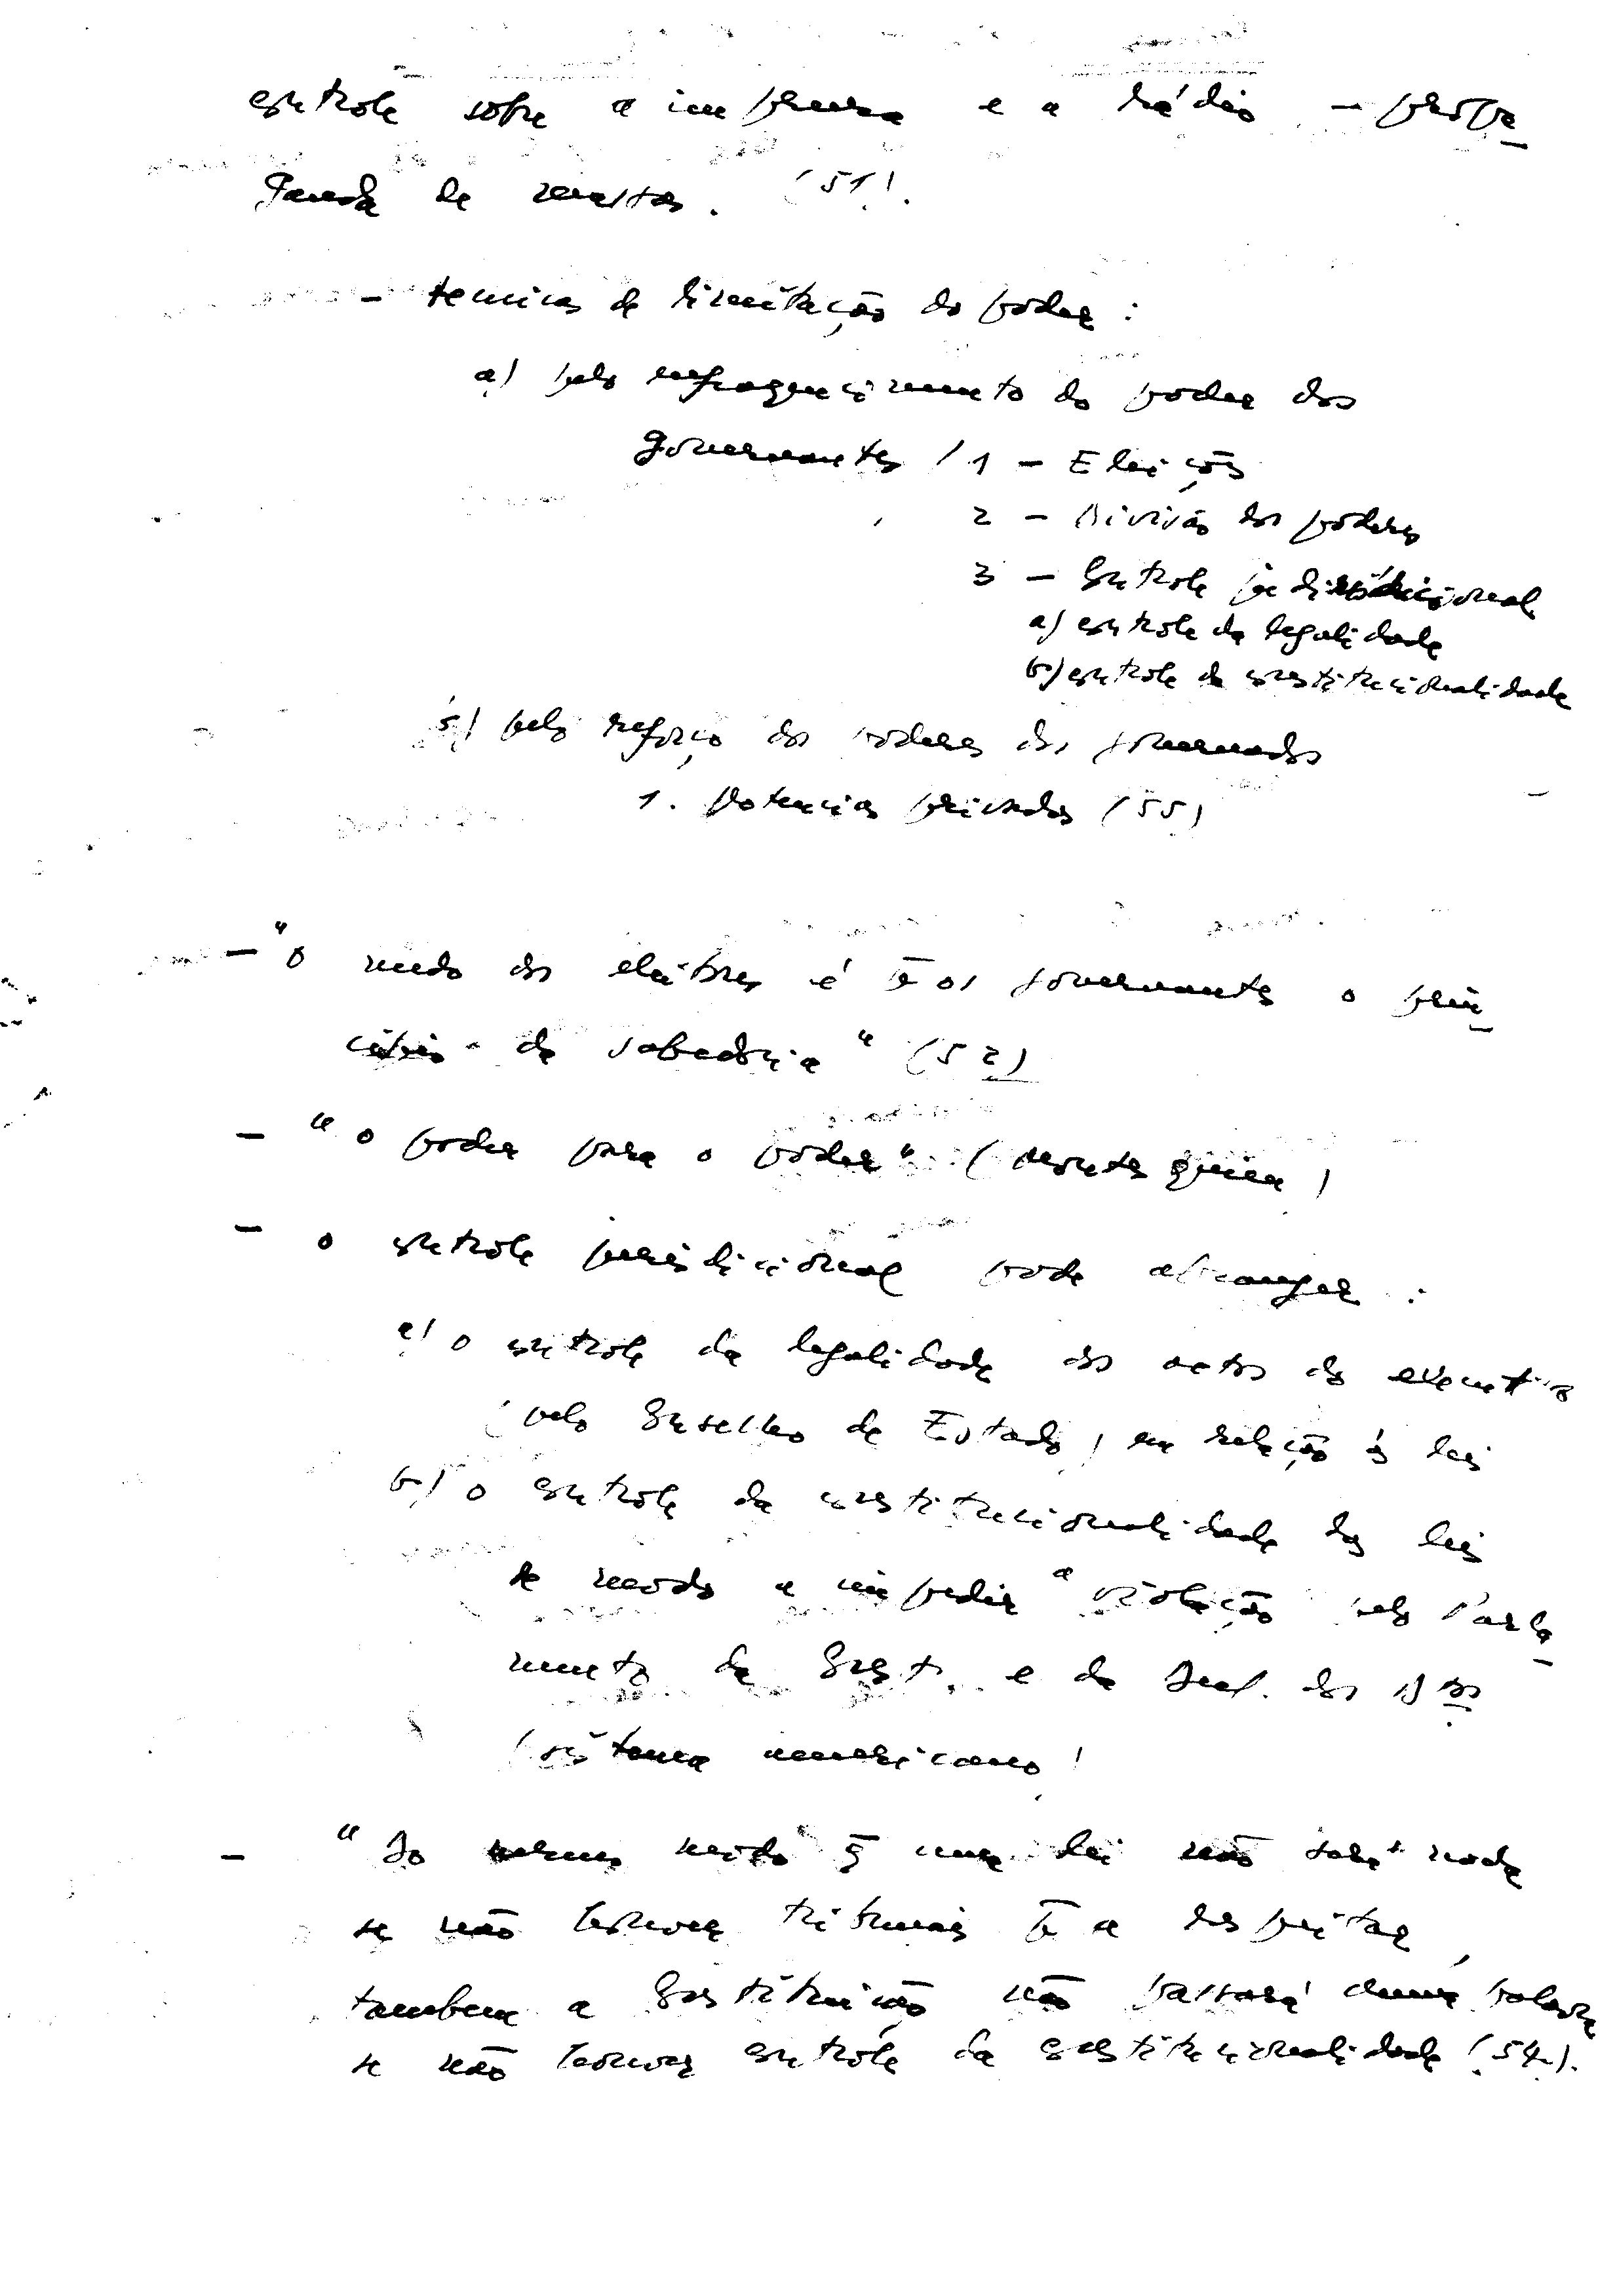 controle sobre a imprensa e a rádio – propa
ganda de massas. (51).
– tecnicas de limitação do poder :
a) pelo enfraquecimento do poder dos
governantes / 1 – Eleições
2 – Divisão dos poderes
3 – Controle jurisdicional
a) controle da legalidade
b) controle da constitucionalidade
b) pelo reforço dos poderes dos governados
1. Potencias privadas (55)
– "o medo dos eleitores é pª os governantes o prin
cípio da sabedoria" (52)
– "o poder para o poder" (
– o controle jurisdicional pode abranger :
a) o controle da legalidade dos actos do executivo
(pelo Conselho de Estado) em relação às leis
b) o controle da constitucionalidade das leis
de modo a impedir a violação pelo Parla
mento da Const. e da Decl. dos DD
(sistema americano)
– "Do mesmo modo q̃ uma lei não será nada
se não houver tribunais pª a respeitar,
tambem a Constituição não passará duma palavra
se não houver controle da constitucionalidade (54).